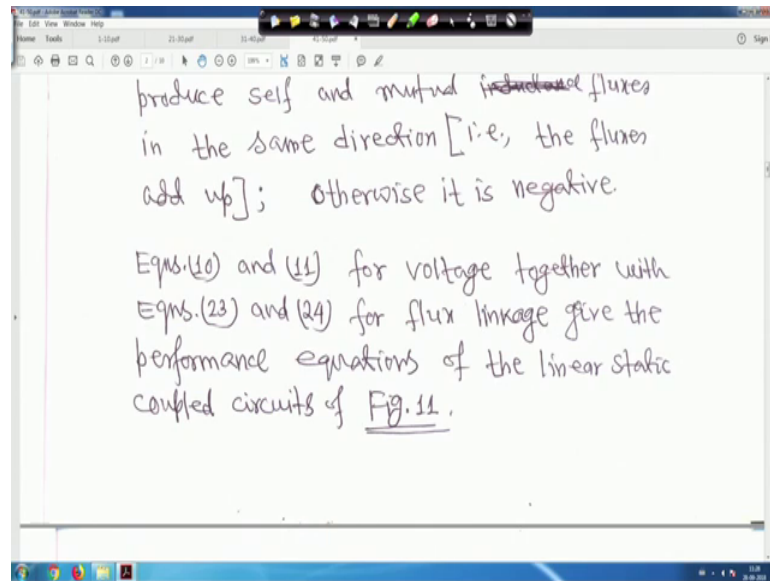 File Edit View Window Help
Home Tools 1-10.pdf 21-30.pdf 31-40.pdf 41-50.pdf Sign
produce self and mutual fluxes
in the same direction [i.e., the fluxes
add up]; otherwise it is negative.
Eqns.(10) and (11) for voltage together with
Eqns.(23) and (24) for flux linkage give the
performance equations of the linear static
coupled circuits of Fig. 11.